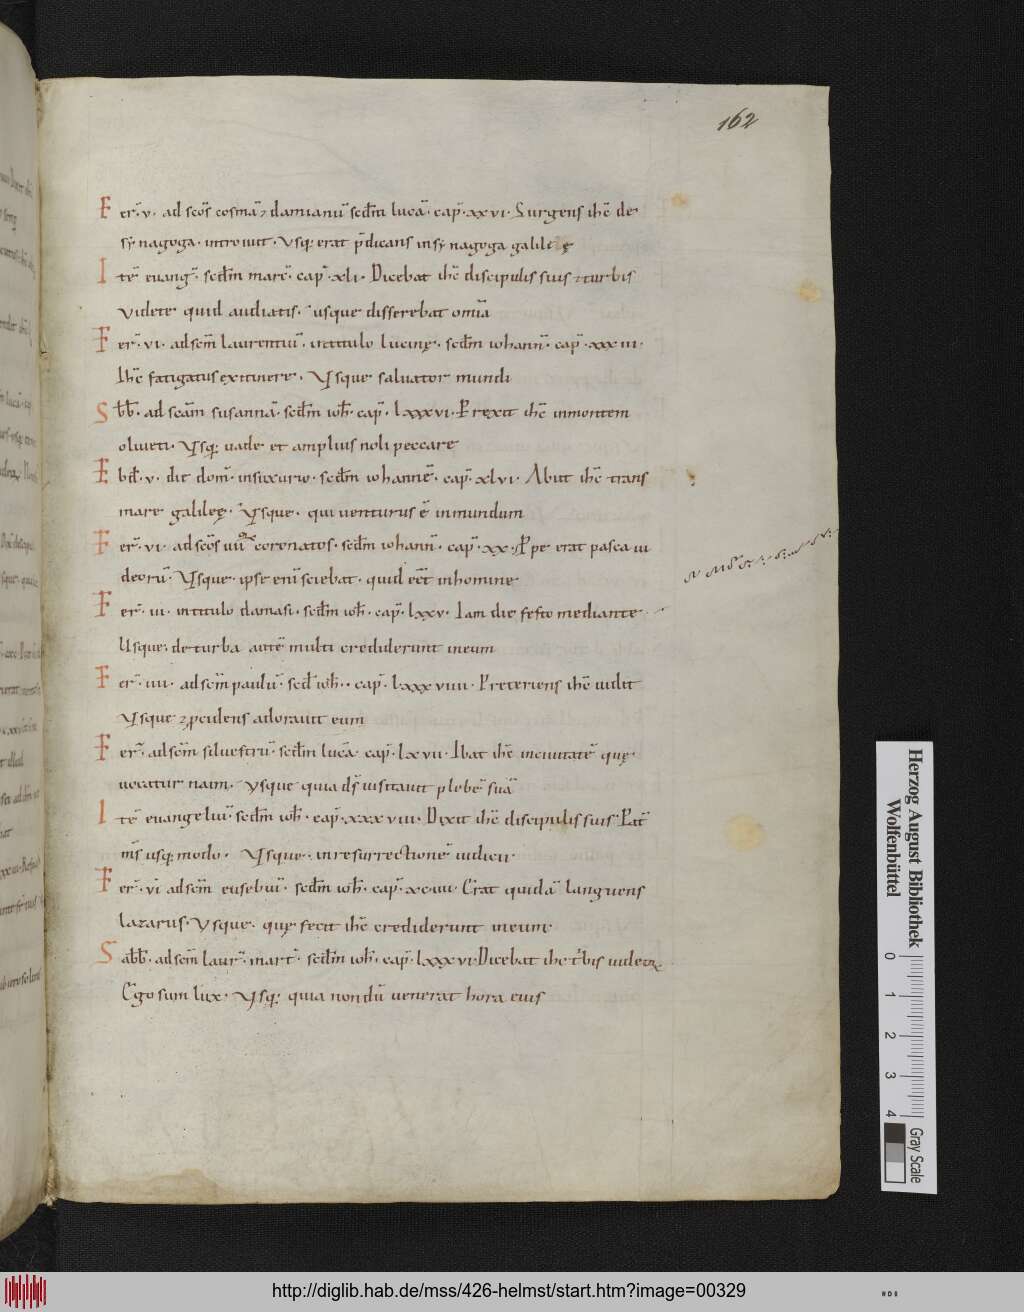 162
Fer̄ v. ad scōs cosmā ⁊ damianū scdm̄ lucā. cap̄. xxvi. Surgens ihc̄ de
synagoga. introiuit. Vsq; erat p̄dicans in synagoga galileę
Itē euanḡ. scdm̄ marc̄. cap̄ xli. Dicebat ihc̄ discipulis suis ⁊ turbis
Videte quid audiatis. usque disserebat omīa
Fer̄. vi. ad scm̄ laurentiū. intitulo lucinę. scdm̄ iohann̄. cap̄. xxxiii.
Ihc̄ fatigatus ex itinere. Vsque saluator mundi
Sbb̄. ad scām susannā. scdm̄ ioh̄. cap̄. lxxxvi. Prexit ihc̄ inmontem
oliueti. Vsq; uade et amplius noli peccare
Ebd̄. v. dit dom̄. scdm̄ iohannē. cap̄. xlvi. Abiit ihc̄ trans
mare galileę. Vsque. qui uenturus ē inmundum
Fer̄. vi. ad scōs coronatos. scdm̄ iohann̄. cap̄. xx. Ppe erat pascha iu
deorū. Vsque. ipse enī sciebat. quid eēt inhomine
Fer̄. iii. intitulo damasi. scdm̄ ioh̄. cap̄. lxxv. Iam die festo mediante
Usque. deturba autē multi crediderunt ineum
Fer̄. iiii. ad scm̄ paulū. scd̄ ioh̄. cap̄. lxxxviiii. Preteriens ihc̄ uidit
Vsque ⁊ pcidens adorauit eum
Fer̄. ad scm̄ siluestrū. scdm̄ lucā. cap̄. lxvii. Ibat ihc̄ inciuitatē quę
uocatur naim. Vsque quia ds̄ uisitauit plebē suā
Itē euangeliū. scdm̄ ioh̄. cap̄. xxxviii. Dixit ihc̄ discipulis suis. Pat̄
ms̄ usq; modo. Vsque. inresurrectionē iudicii
Fer̄. vi ad scm̄ eusebiū. scdm̄ ioh̄. cap̄. xciiii. Erat quidā languens
lazarus. Vsque. quę fecit ihc̄ crediderunt ineum
Sabb̄. ad scm̄ laur̄. mart̄. scdm̄ ioh̄. cap̄. lxxxvi. Dicebat ihc̄ t̄bis iudeoꝝ
Ego sum lux. Vsq; quia nondū uenerat hora eius
Herzog August Bibliothek
Wolfenbüttel
0 1 2 3 4
Gray Scale
http://diglib.hab.de/mss/426-helmst/start.htm?image=00329